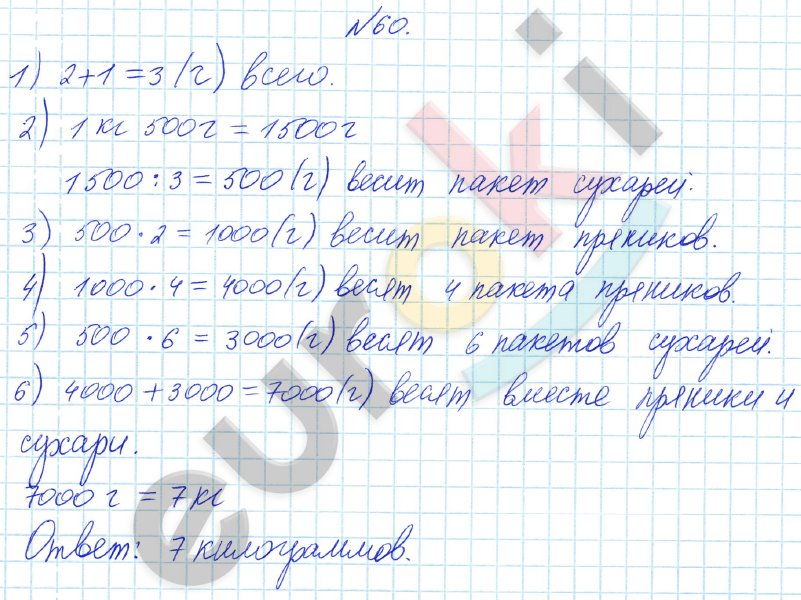 №60.
1) 2+1=3 (г) всего.
2) 1 кг 500 г = 1500 г
1500 : 3 = 500 (г) весит пакет сухарей.
3) 500 · 2 = 1000 (г) весит пакет пряников.
4) 1000 · 4 = 4000 (г) весят 4 пакета пряников.
5) 500 · 6 = 3000 (г) весят 6 пакетов сухарей.
6) 4000 + 3000 = 7000 (г) весят вместе пряники и
сухари.
7000 г = 7 кг
Ответ: 7 килограммов.
euroki